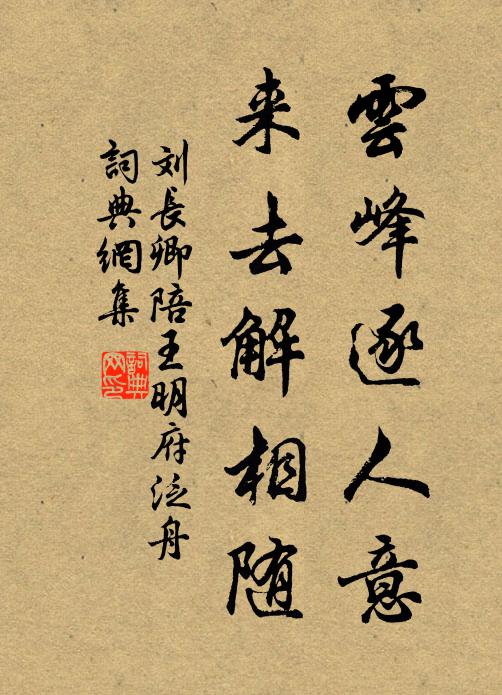 雲峰逐人意
来去解相随
刘長卿陪王明府泛舟
詞典網集
詞典
网印